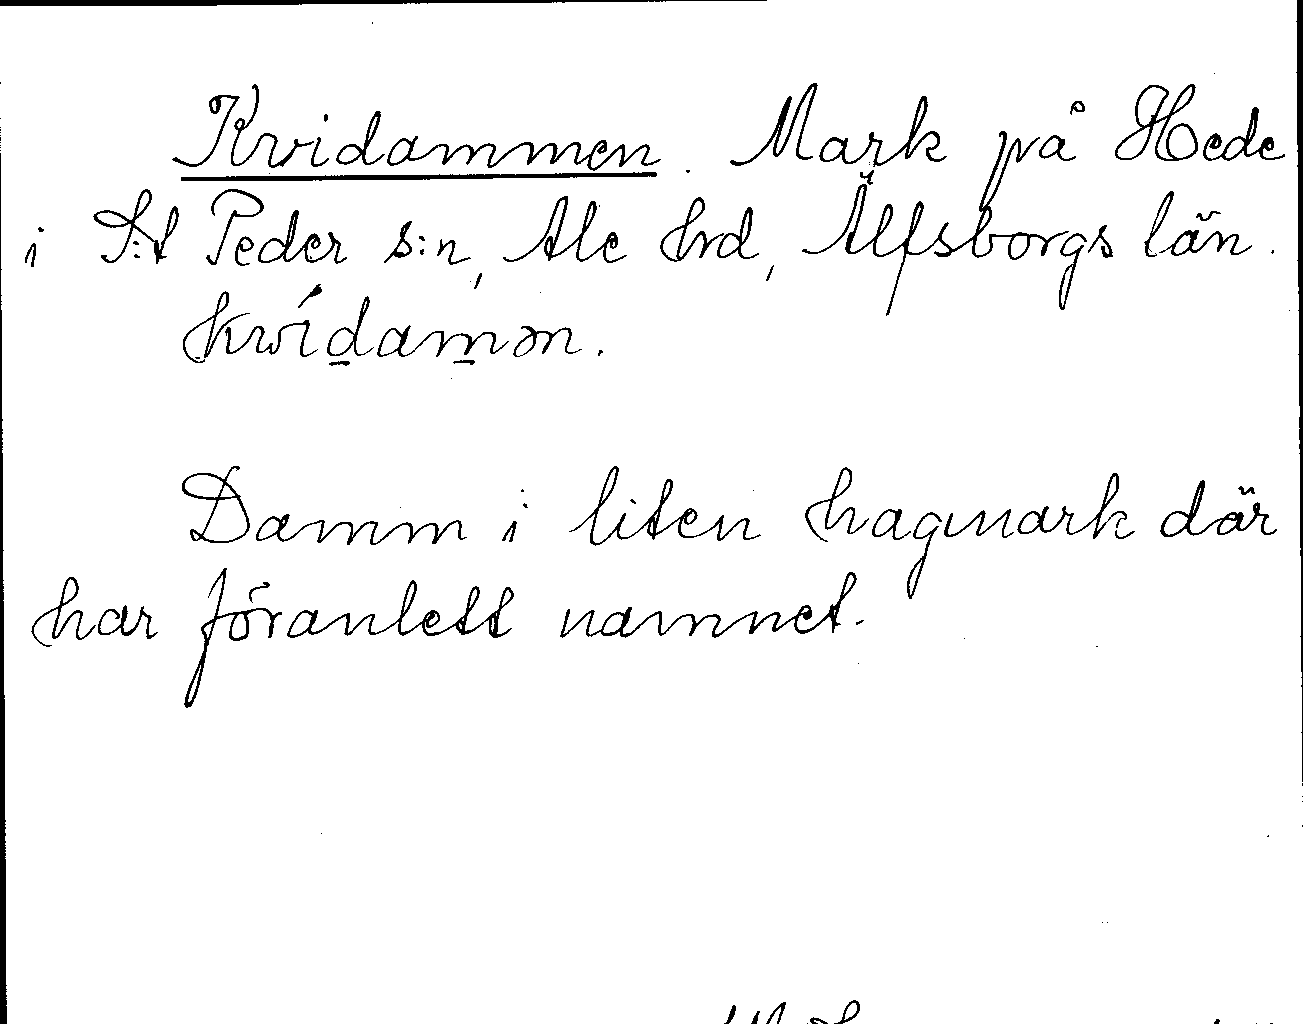 Kvidammen. Mark på Hede
i S:t Peder s:n, Ale hrd, Älfsborgs län.
kwídamən.
Damm i liten hagmark där
har föranlett namnet.